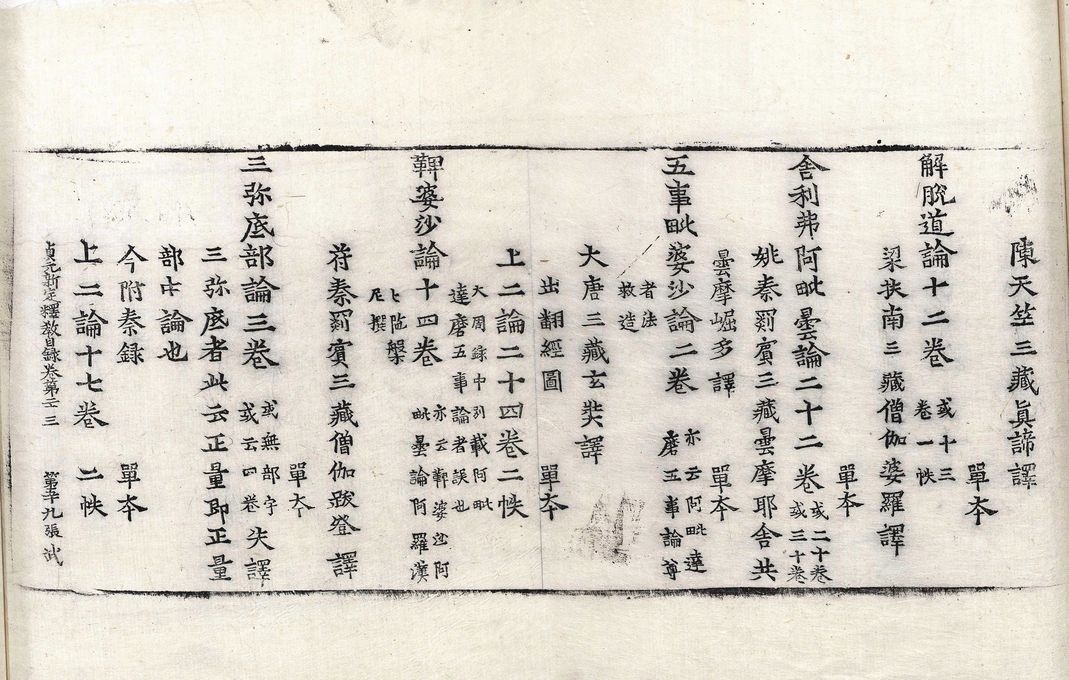 陳天竺三藏眞諦譯
解脫道論十二卷 或十三卷一帙 單夲
梁扶南三藏僧伽婆羅譯
舎利弗阿毗曇論二十二卷 或二十卷或三十卷 單夲
姚秦罽賓三藏曇摩耶舍共
曇摩崛多譯
五事毗婆沙論二卷 亦云阿毗達磨五事論尊者法救造 單夲
大唐三藏玄奘譯
出翻經圖
上二論二十四卷二帙
大周錄中列載阿毗達磨五事論者誤也
鞞婆沙論十四卷 亦云鞞婆沙阿毗曇論阿羅漢 單夲
符秦罽賓三藏僧伽跋登譯
三弥底部論三卷 或無部字或云四卷 失譯 單夲
三弥底者此云正量即正量
部中論也
今附秦録 單夲
上二論十七卷 二帙
貞元新定釋教目録卷第 三 九張 弐